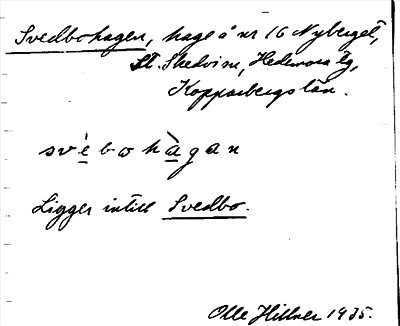 Svedbohagen, hage å nr 16 Nyberget,
St. Skedvi sn, Hedemora tg,
Kopparbergs län.
svè bo hàgan
Ligger intill Svedbo.
Olle Hillner 1935.